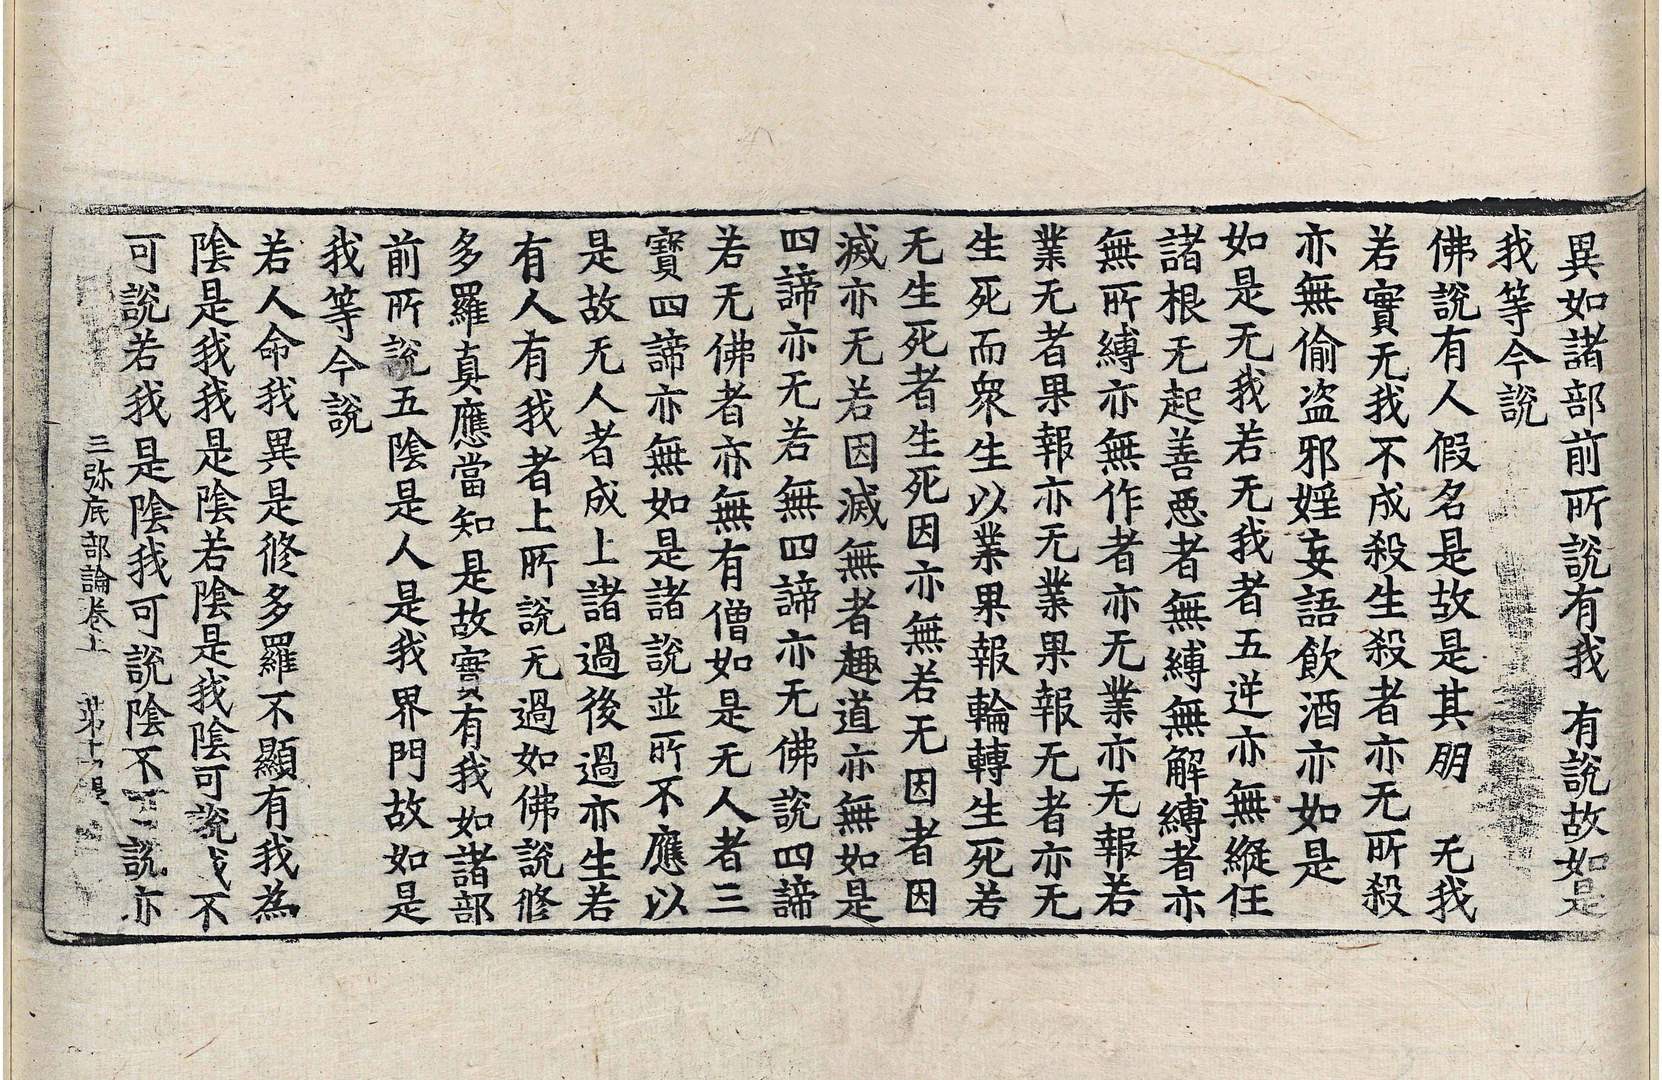 異如諸部前所説有我 有説故如是
我等今説
佛説有人假名是故是其朋 无我
若實无我不成殺生殺者亦无所殺
亦無偷盗邪婬妄語飲酒亦如是
如是无我若无我者五逆亦無縱任
諸根无起善惡者無縛無解縛者亦
無所縛亦無作者亦无業亦无報若
業无者果報亦无業果報无者亦无
生死而衆生以業果報輪轉生死若
无生死者生死因亦無若无因者因
滅亦无若因滅無者趣道亦無如是
四諦亦无若無四諦亦无佛説四諦
若无佛者亦無有僧如是无人者三
寳四諦亦無如是諸説並所不應以
是故无人者成上諸過後過亦生若
有人有我者上所説无過如佛説修
多羅真應當知是故實有我如諸部
前所説五陰是人是我界門故如是
我等今説
若人命我異是修多羅不顯有我為
陰是我我是陰若陰是我陰可説我不
可説若我是陰我可説陰不 説亦
三弥底部論卷上 苐十